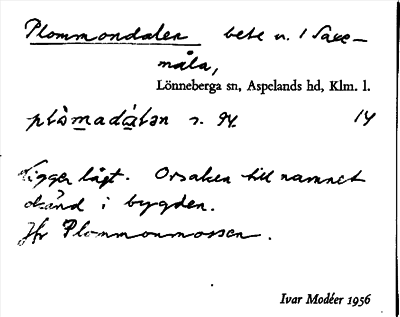 Plommondalen bete n. / Saxe-
måla,
Lönneberga sn, Aspelands hd, Klm. l.
s. 94. 14
Ligger lågt. Orsaken till namnet
okänd i bygden.
Jfr Plommonmossen.
Ivar Modéer 1956